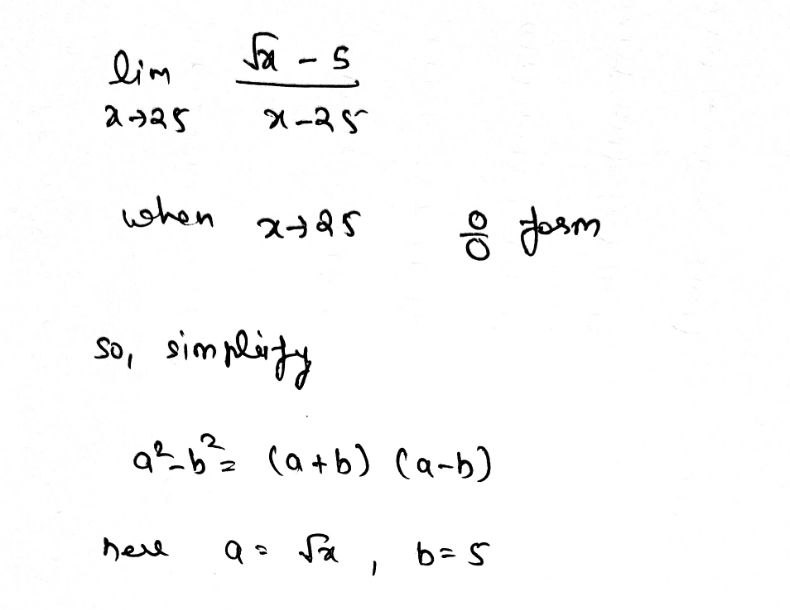 lim √x - 5
x→25 x-25
when x→25 0/0 form
so, simplify
a²-b² = (a+b) (a-b)
here a = √x , b = 5